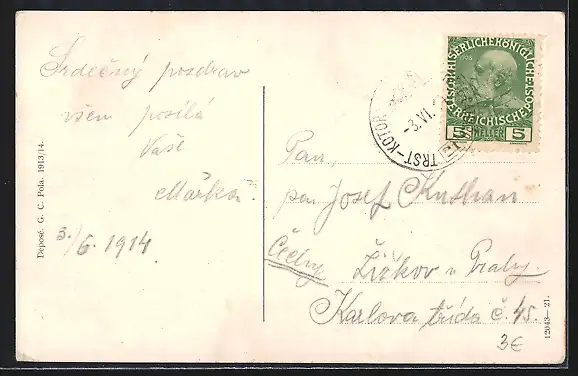 Srdečný pozdrav
všem posílá
Vaše
Mařka.
3./6. 1914
Deposé. G. C. Pola. 1913/14.
KAISERLICHEKÖNIGLICHE
ÖSTERREICHISCHE POST
1908
5 HELLER 5
TRST-KOTOR
-3.VI.
Pan,
pan Josef Kuthan
Čechy
Žižkov u Prahy.
Karlova třída č. 45.
3€
12043—21.